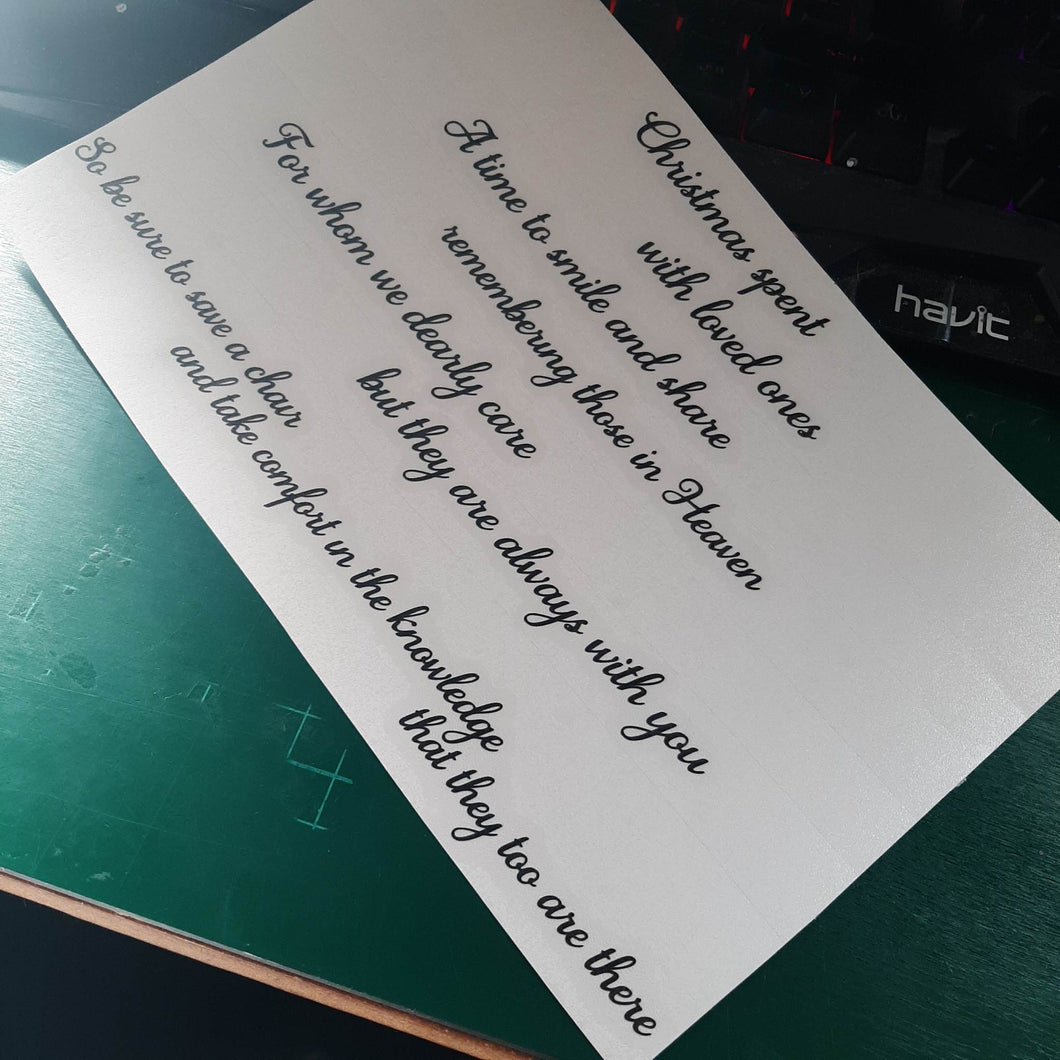 Christmas spent
with loved ones
A time to smile and share
remembering those in Heaven
For whom we dearly care
but they are always with you
So be sure to save a chair
and take comfort in the knowledge
that they too are there
havit